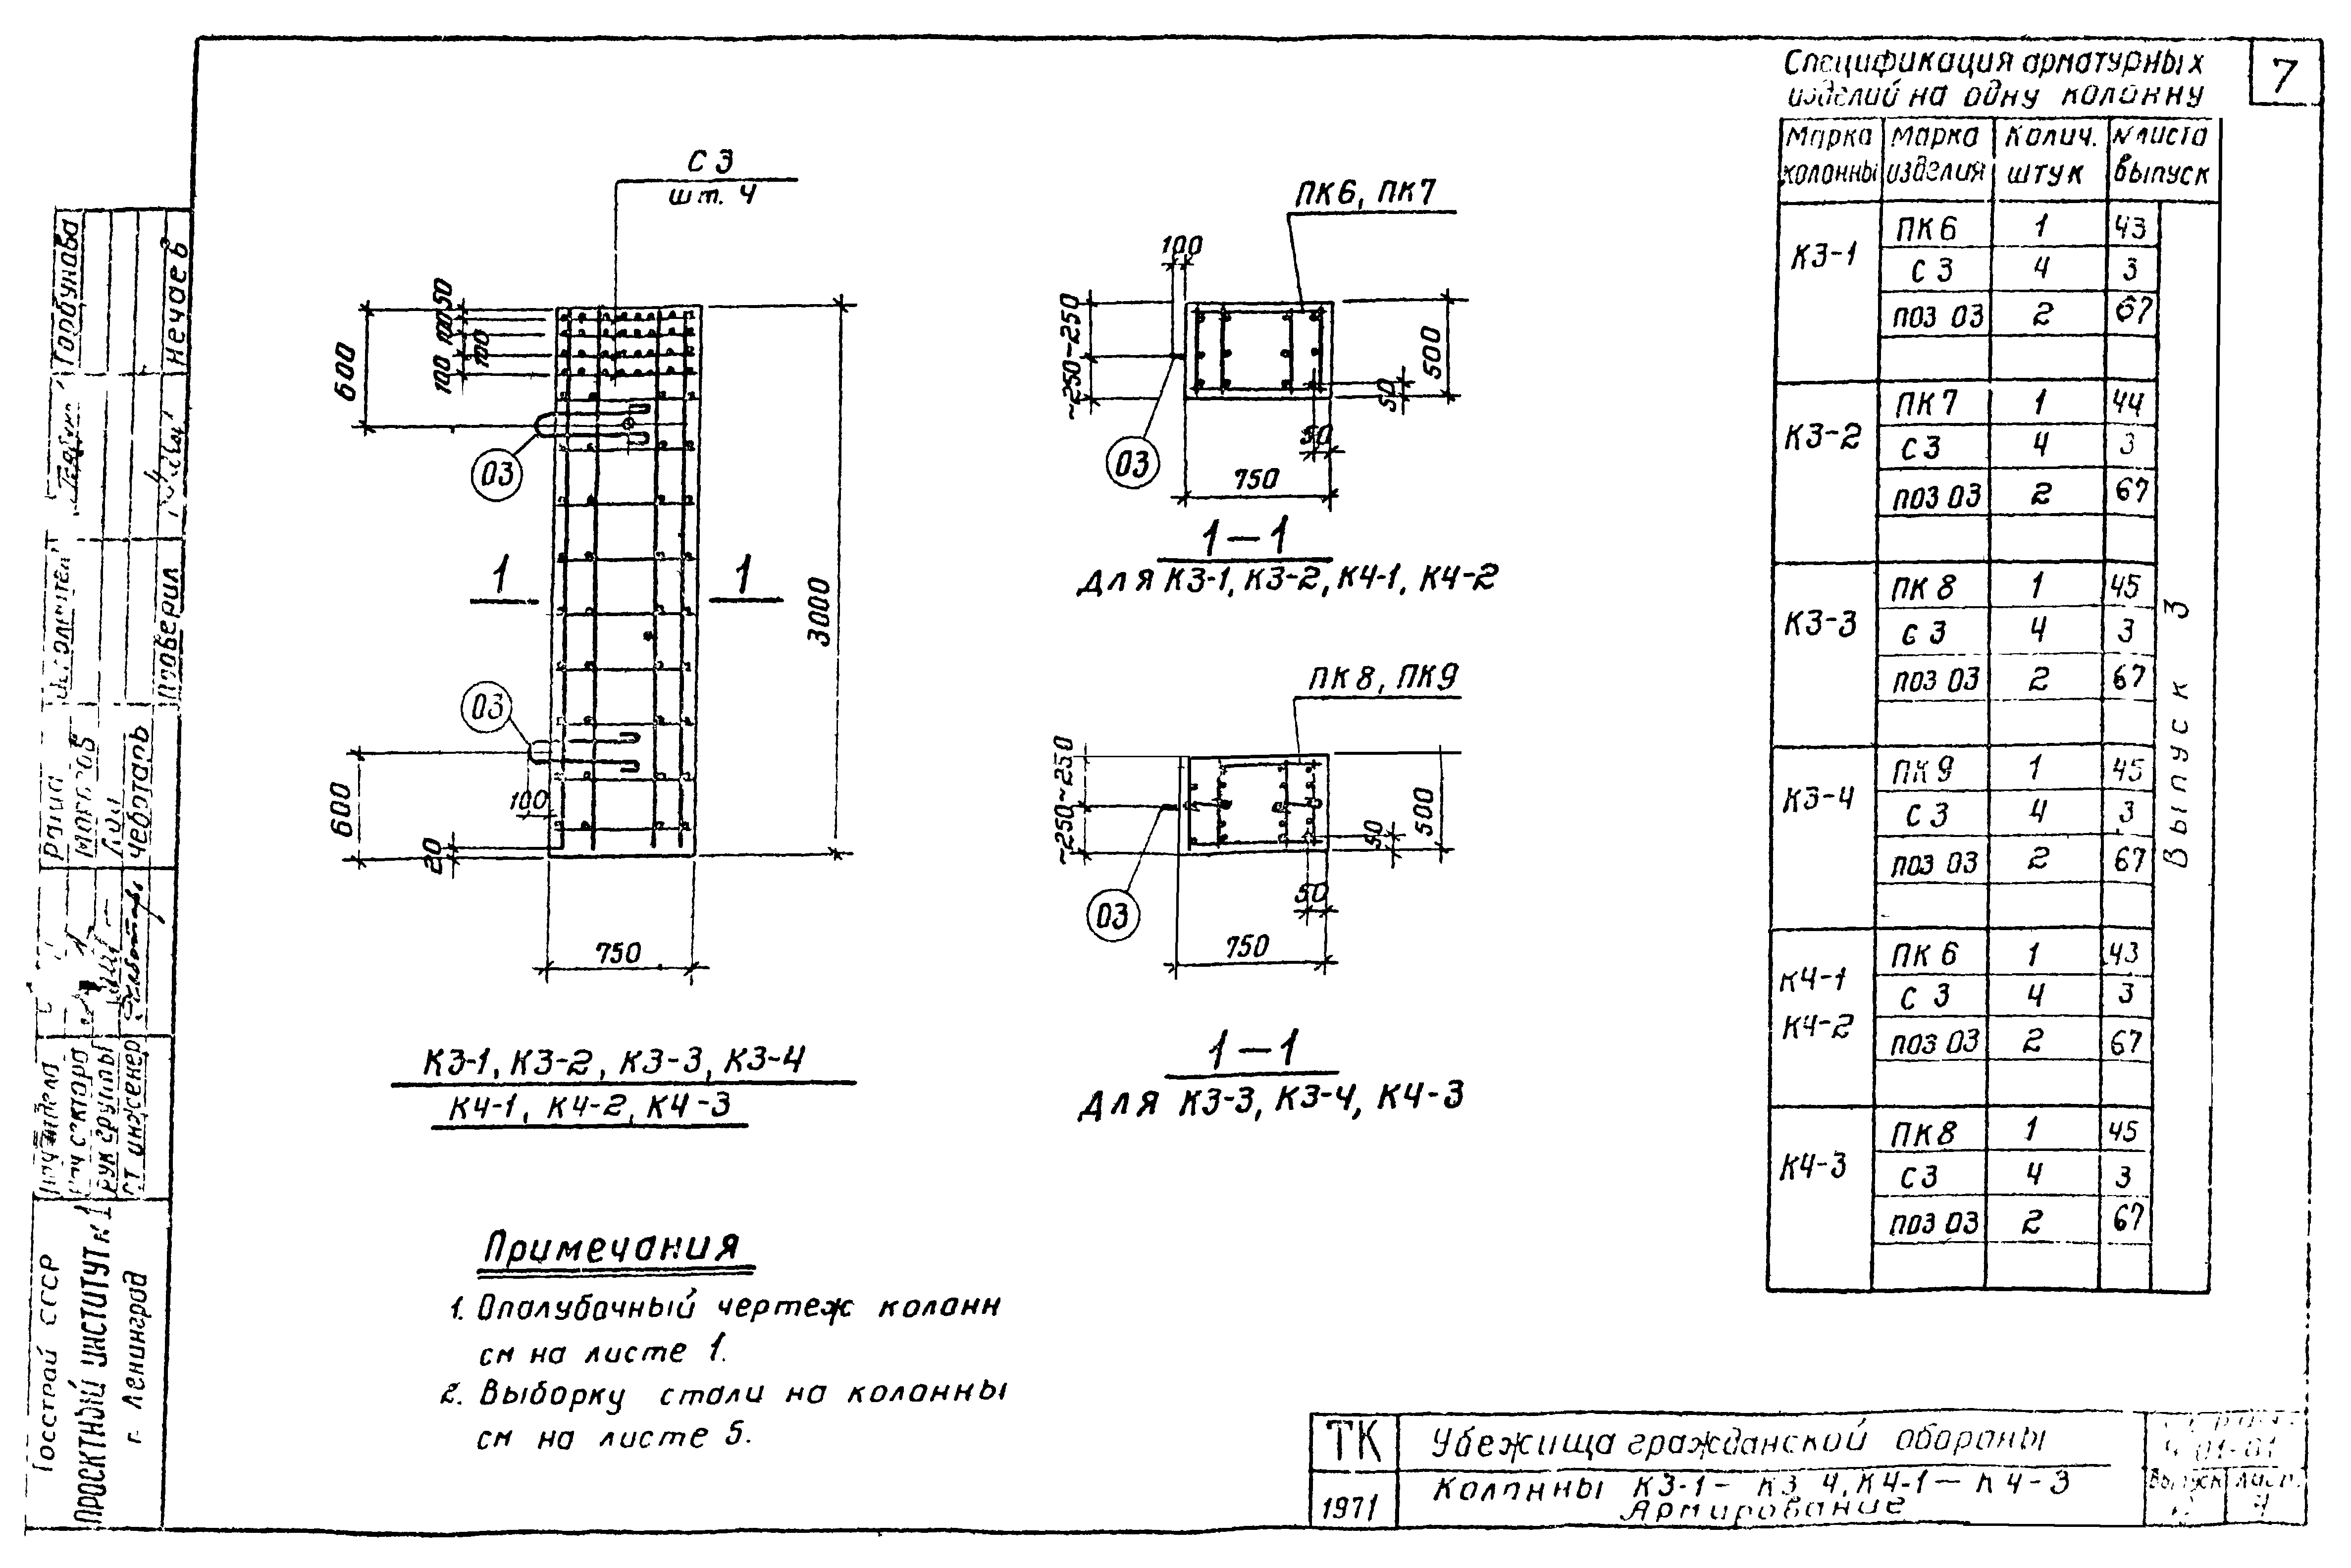 7
Спецификация арматурных
изделий на одну колонну
Марка колонны
Марка изделия
Колич. штук
N листа выпуск
К3-1
ПК6 1 43
С3 4 3
поз 03 2 67
К3-2
ПК7 1 44
С3 4 3
поз 03 2 67
К3-3
ПК8 1 45
С3 4 3
поз 03 2 67
К3-4
ПК9 1 45
С3 4 3
поз 03 2 67
К4-1
К4-2
ПК6 1 43
С3 4 3
поз 03 2 67
К4-3
ПК8 1 45
С3 4 3
поз 03 2 67
Выпуск 3
С3
шт. 4
50
100
100
100
600
03
1
1
3000
03
600
100
20
750
К3-1, К3-2, К3-3, К3-4
К4-1, К4-2, К4-3
ПК6, ПК7
100
~250
~250
500
50
50
03
750
1—1
для К3-1, К3-2, К4-1, К4-2
ПК8, ПК9
~250
~250
500
50
50
03
750
1—1
для К3-3, К3-4, К4-3
Примечания
1. Опалубочный чертеж колонн
см на листе 1.
2. Выборку стали на колонны
см на листе 5.
ТК
1971
Убежища гражданской обороны
Колонны К3-1 – К3 4, К4-1 – К4-3
Армирование
Выпуск
лист
7
Госстрой СССР
ПРОЕКТНЫЙ ИНСТИТУТ N 1
г. Ленинград
нач отдела
нач сектора
рук группы
ст инженер
Чеботаль
Проверил
Горбунова
Нечаев